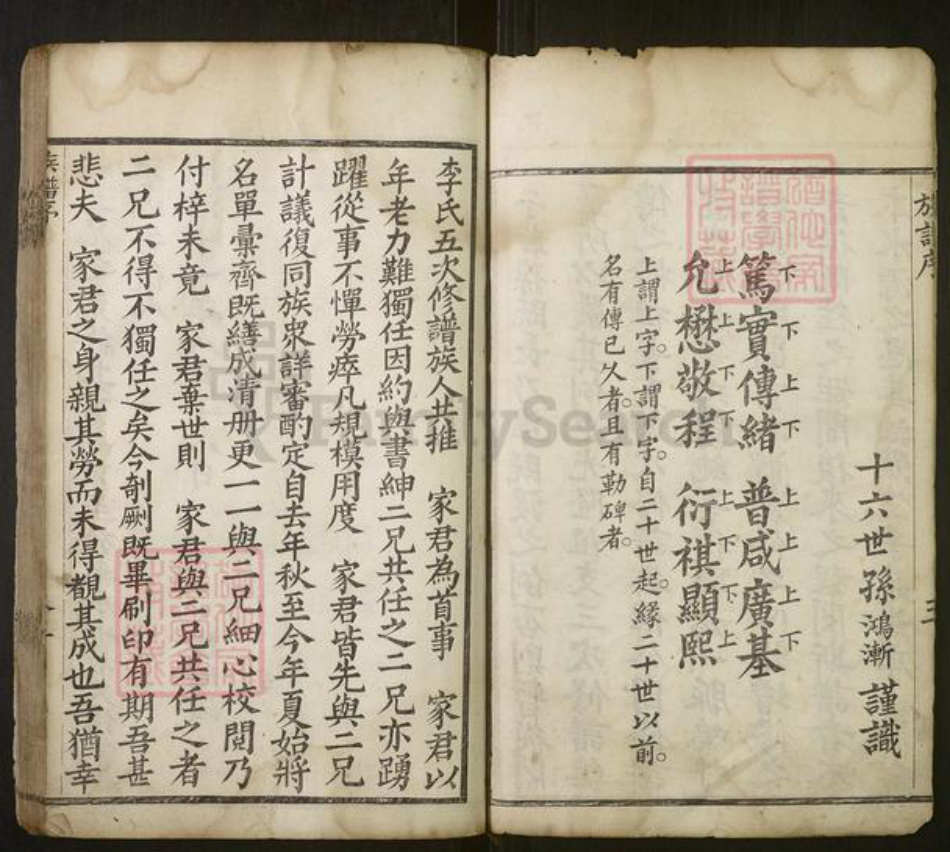 十六世孫鴻漸謹識
篤實傳緒 普咸廣基
下下上下 上上上下
允懋敬程 衍祺顯熙
上上下下 上下下上
上謂上字。下謂下字。自二十世起緣二十世以前。
名有傳已久者。且有勒碑者。
李氏五次修譜族人共推 家君為首事 家君以
年老力難獨任因約與書紳二兄共任之二兄亦踴
躍從事不憚勞瘁凡規模用度 家君皆先與二兄
計議復同族眾詳審酌定自去年秋至今年夏始將
名單彙齊既繕成清册更一一與二兄細心校閱乃
付梓未竟 家君棄世則 家君與二兄共任之者
二兄不得不獨任之矣今剞劂既畢刷印有期吾甚
悲夫 家君之身親其勞而未得觀其成也吾猶幸
FamilySearch